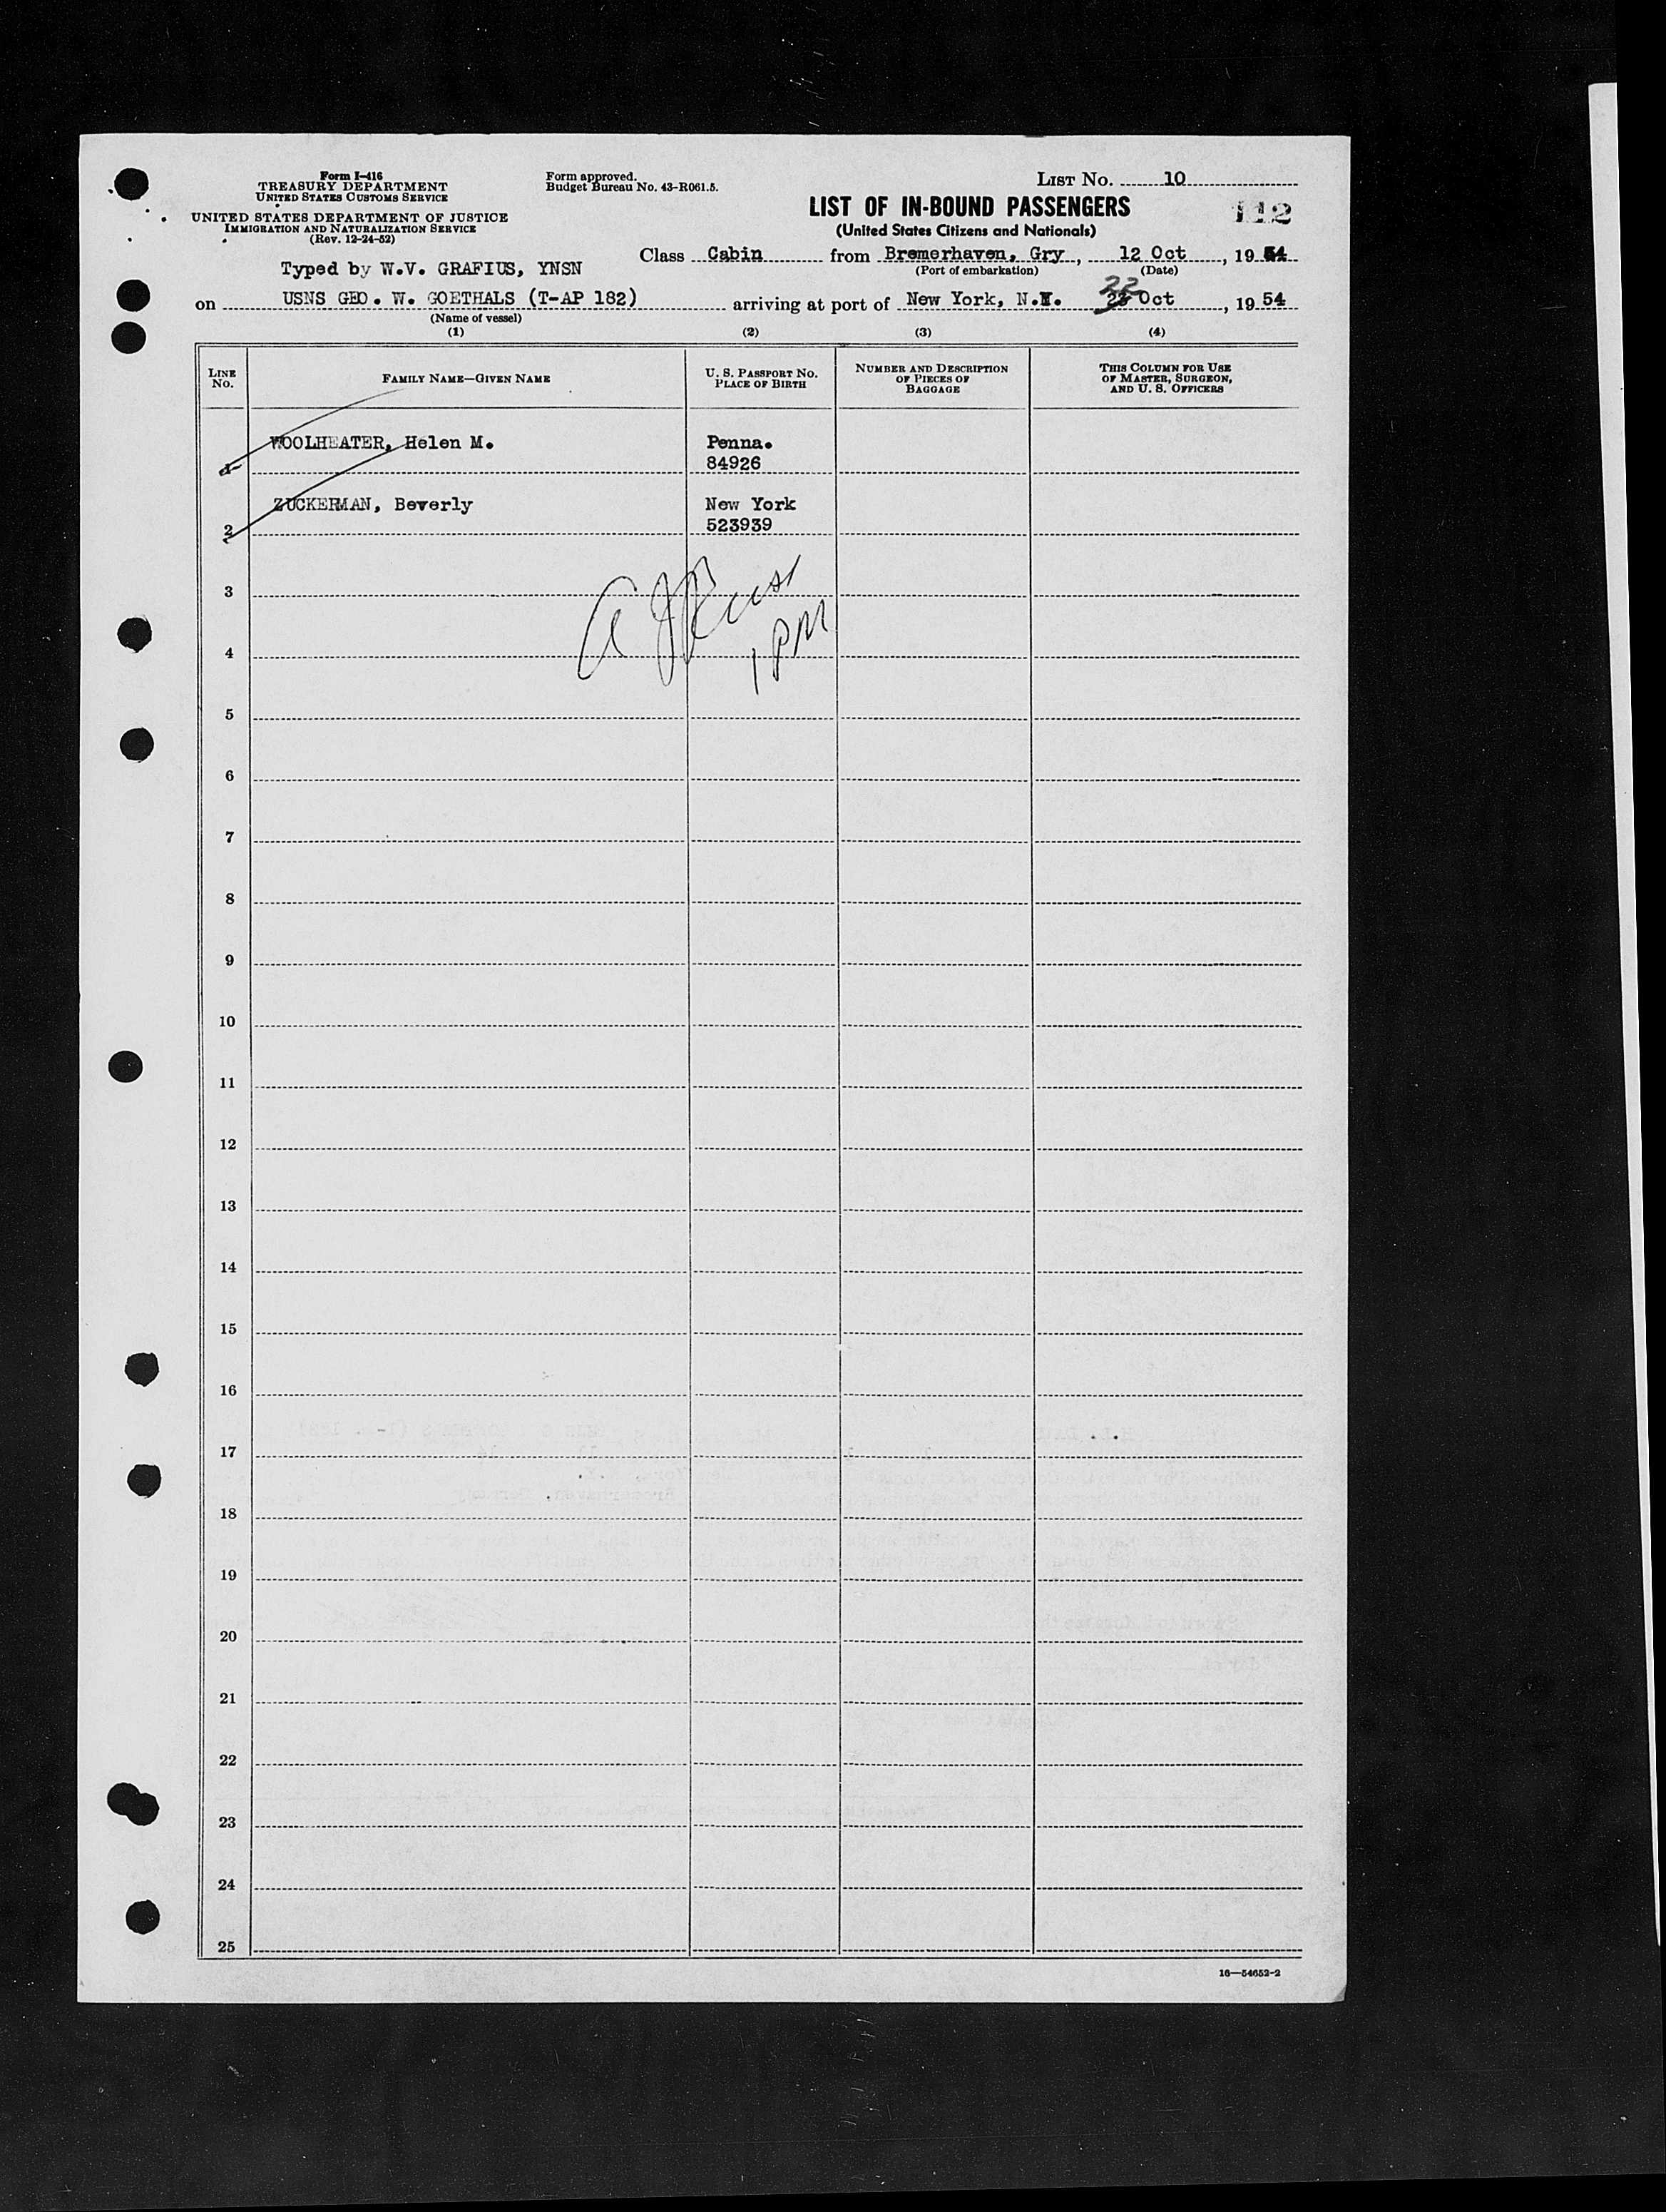 Form I-416
TREASURY DEPARTMENT
UNITED STATES CUSTOMS SERVICE
UNITED STATES DEPARTMENT OF JUSTICE
IMMIGRATION AND NATURALIZATION SERVICE
(Rev. 12-24-52)
Form approved.
Budget Bureau No. 43-R061.5.
LIST NO. 10
LIST OF IN-BOUND PASSENGERS
112
(United States Citizens and Nationals)
Class Cabin from Bremerhaven, Gry, 12 Oct, 1954
(Port of embarkation) (Date)
Typed by W.V. GRAFIUS, YNSN
on USNS GEO. W. GOETHALS (T-AP 182) arriving at port of New York, N.Y. 22 Oct, 1954
(Name of vessel)
(1) (2) (3) (4)
LINE NO.
FAMILY NAME—GIVEN NAME
U. S. PASSPORT NO.
PLACE OF BIRTH
NUMBER AND DESCRIPTION
OF PIECES OF
BAGGAGE
THIS COLUMN FOR USE
OF MASTER, SURGEON,
AND U. S. OFFICERS
WOOLHEATER, Helen M. Penna.
1 84926
ZUCKERMAN, Beverly New York
2 523939
3
1 PM
4
5
6
7
8
9
10
11
12
13
14
15
16
17
18
19
20
21
22
23
24
25
16—54652-2